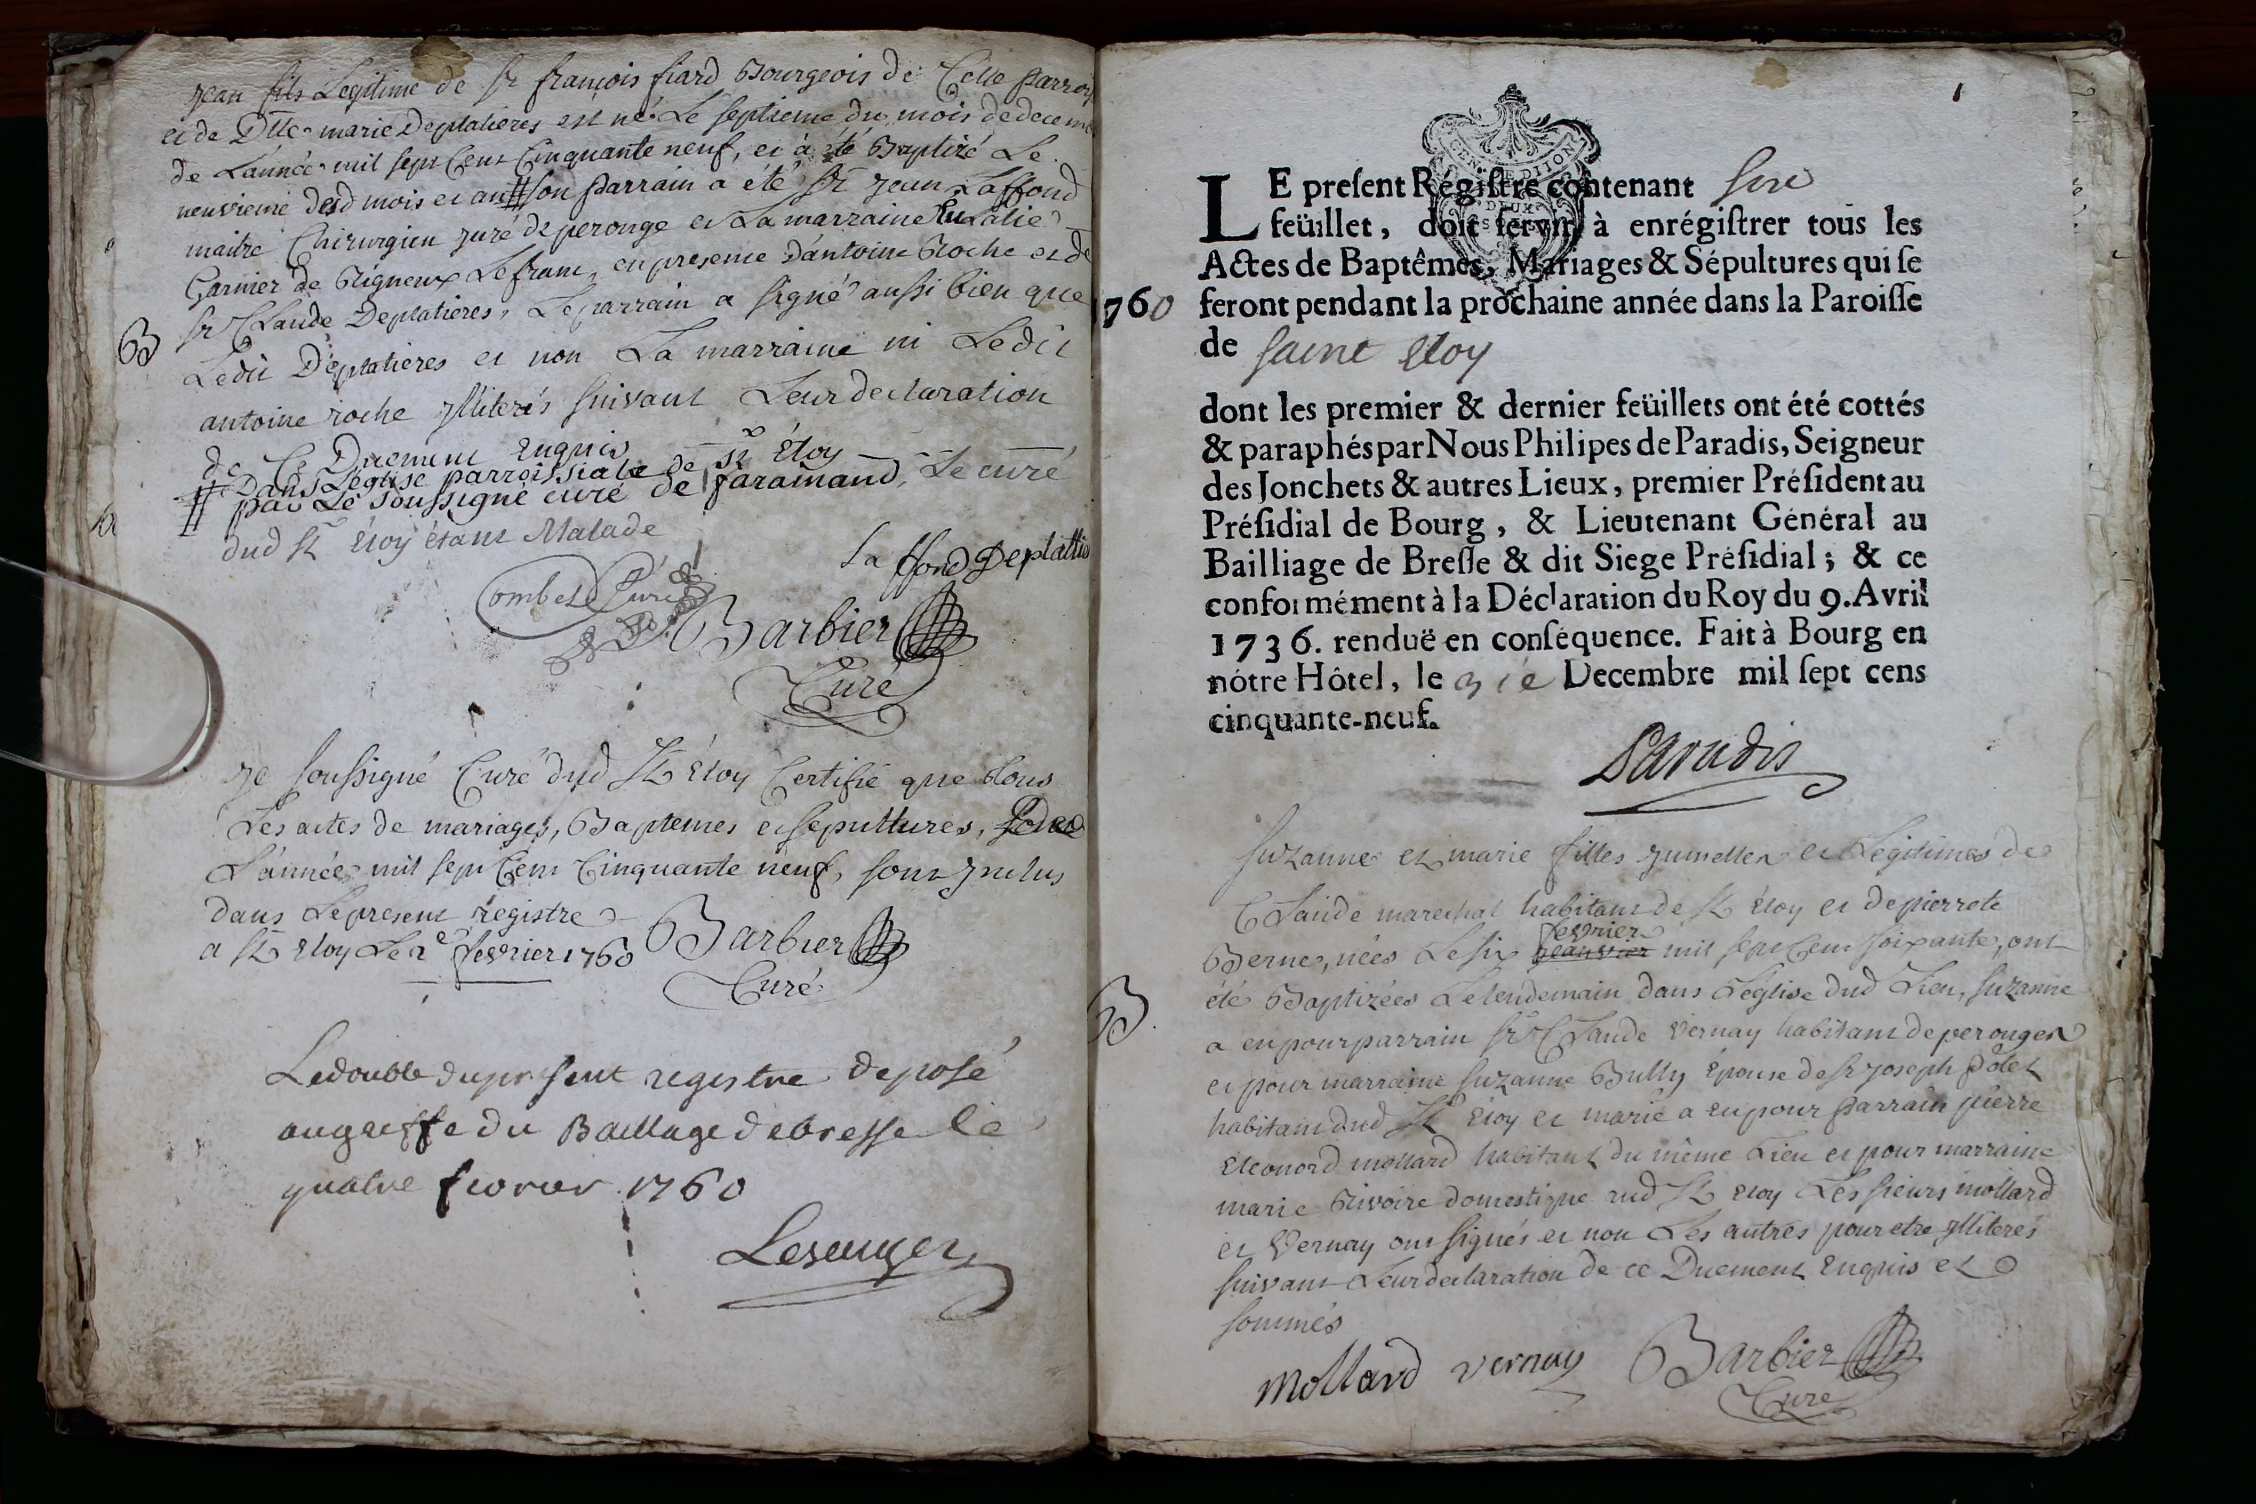 Jean fils Legitime de Sr françois fiard Bourgeois de Cette parroi
et de Dlle marie Deplatieres est né Le septieme du mois de decem
de L'année mil sept Cent Cinquante neuf, et à été Baptizé Le
neuvieme dud mois et an # son parrain a été Sr jean Laffond
maitre Chirurgien juré de perouge et La marraine Eulalie
Garnier de Rigneux Lefranc, en presence d'antoine Roche et de
Sr Claude Deplatieres, Le parrain a signé aussi bien que
B
Ledit Deplatieres et non La marraine ni Ledit
antoine roche jlliterés suivant Leur declaration
de Ce Duement Enquis
# Dans L'eglise parroissiale de St Éloy
par Le soussigné curé de faramand, Le curé
dud St Eloy étant Malade
Laffond Deplattie
Combet Curé
Barbier
Curé
Je soussigné Curé dud St Eloy Certifie que tous
Les actes de mariages, Baptemes et sepultures,
L'année mil sept Cent Cinquante neuf, sont jnclus
dans Le present registre
a St Eloy Le 2e fevrier 1760 Barbier
Curé
Le double du present registre deposé
au greffe du Baillage de bresse le
quatre fevrier 1760
1
LE preſent Régiſtre contenant
feüillet, doit ſervir à enrégiſtrer tous les
Actes de Baptêmes, Mariages & Sépultures qui ſe
1760 feront pendant la prochaine année dans la Paroiſſe
de saint Eloy
dont les premier & dernier feüillets ont été cottés
& paraphés par Nous Philipes de Paradis, Seigneur
des Jonchets & autres Lieux, premier Préſident au
Préſidial de Bourg, & Lieutenant Général au
Bailliage de Breſſe & dit Siege Préſidial; & ce
conformément à la Déclaration du Roy du 9. Avril
1736. renduë en conſéquence. Fait à Bourg en
nôtre Hôtel, le Decembre mil ſept cens
cinquante-neuf.
Paradis
Suzanne et marie filles jumelles et Legitimes de
Claude marechal habitant de St Eloy et de pierrete
fevrier
Berne, nées Le six jeanvier mil sept Cent soixante, ont
été Baptizées Le lendemain dans L'eglise dud Lieu, suzanne
B
a eu pour parrain Sr Claude Vernay habitant de perouges
et pour marraine suzanne Bully Épouse de Sr joseph Polet
habitant dud St Eloy et marie a eu pour parrain pierre
Eleonord mollard habitant du même Lieu et pour marraine
marie Rivoire domestique aud St Eloy Les sieurs mollard
et Vernay ont signés et non Les autres pour etre jlliterés
suivant Leur declaration de ce Duement Enquis et
sommés
Mollard Vernay Barbier
Curé